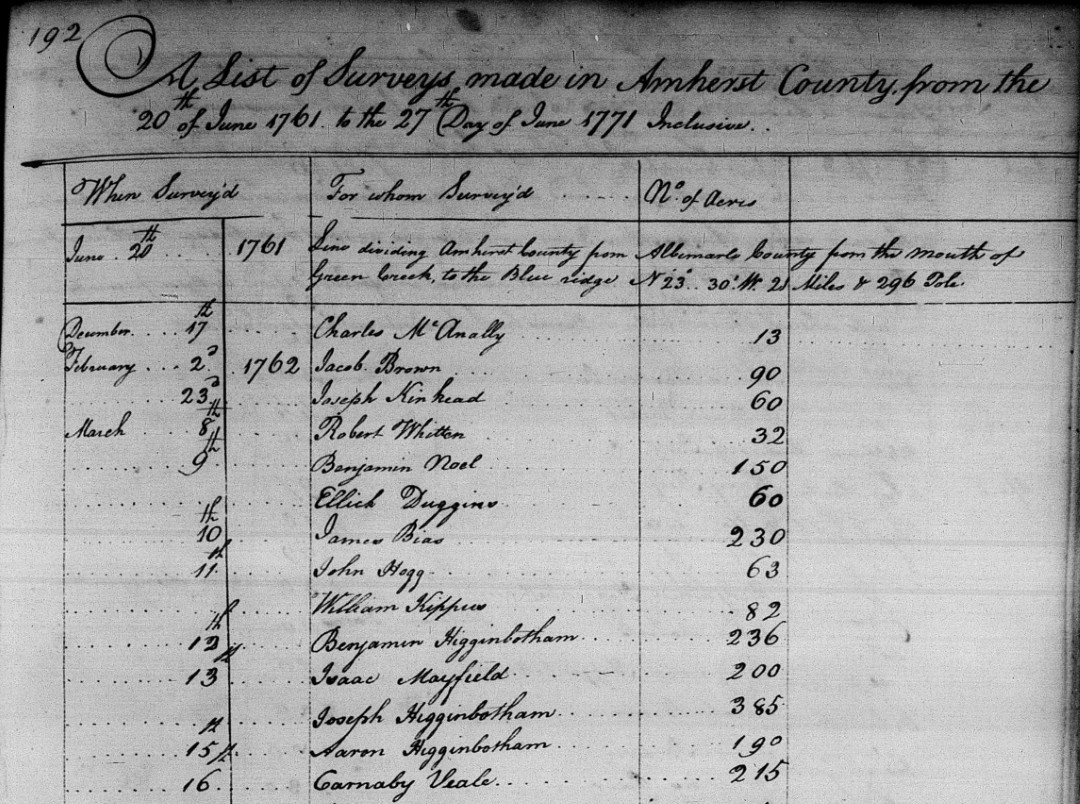 192
A List of Surveys made in Amherst County, from the
20th of June 1761. to the 27th Day of June 1771 Inclusive..
When Survey'd For whom Survey'd No. of Acres
June 20th 1761 Line dividing Amherst County from Albemarle County from the mouth of
Green Creek, to the Blue ridge N 23° 30' W. 21 Miles & 296 Pole.
December 17th Charles McAnally 13
February 2d 1762 Jacob Brown 90
23d Joseph Kinkead 60
March 8th Robert Whitten 32
9th Benjamin Noel 150
Ellick Duggins 60
10th James Bias 230
11th John Hogg 63
William Keppus 82
12th Benjamin Higginbotham 236
13th Isaac Mayfield 200
Joseph Higginbotham 385
15th Aaron Higginbotham 190
16th Carnaby Veale 215